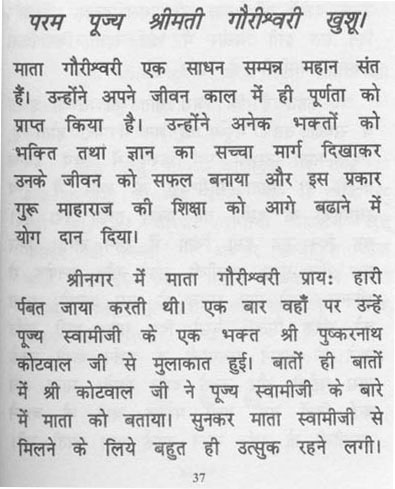 परम पूज्य श्रीमती गौरीश्वरी खुशू।
माता गौरीश्वरी एक साधन सम्पन्न महान संत
हैं। उन्होंने अपने जीवन काल में ही पूर्णता को
प्राप्त किया है। उन्होंने अनेक भक्तों को
भक्ति तथा ज्ञान का सच्चा मार्ग दिखाकर
उनके जीवन को सफल बनाया और इस प्रकार
गुरू माहाराज की शिक्षा को आगे बढाने में
योग दान दिया।
श्रीनगर में माता गौरीश्वरी प्रायः हारी
र्पबत जाया करती थी। एक बार वहाँ पर उन्हें
पूज्य स्वामीजी के एक भक्त श्री पुष्करनाथ
कोटवाल जी से मुलाकात हुई। बातों ही बातों
में श्री कोटवाल जी ने पूज्य स्वामीजी के बारे
में माता को बताया। सुनकर माता स्वामीजी से
मिलने के लिये बहुत ही उत्सुक रहने लगी।
37